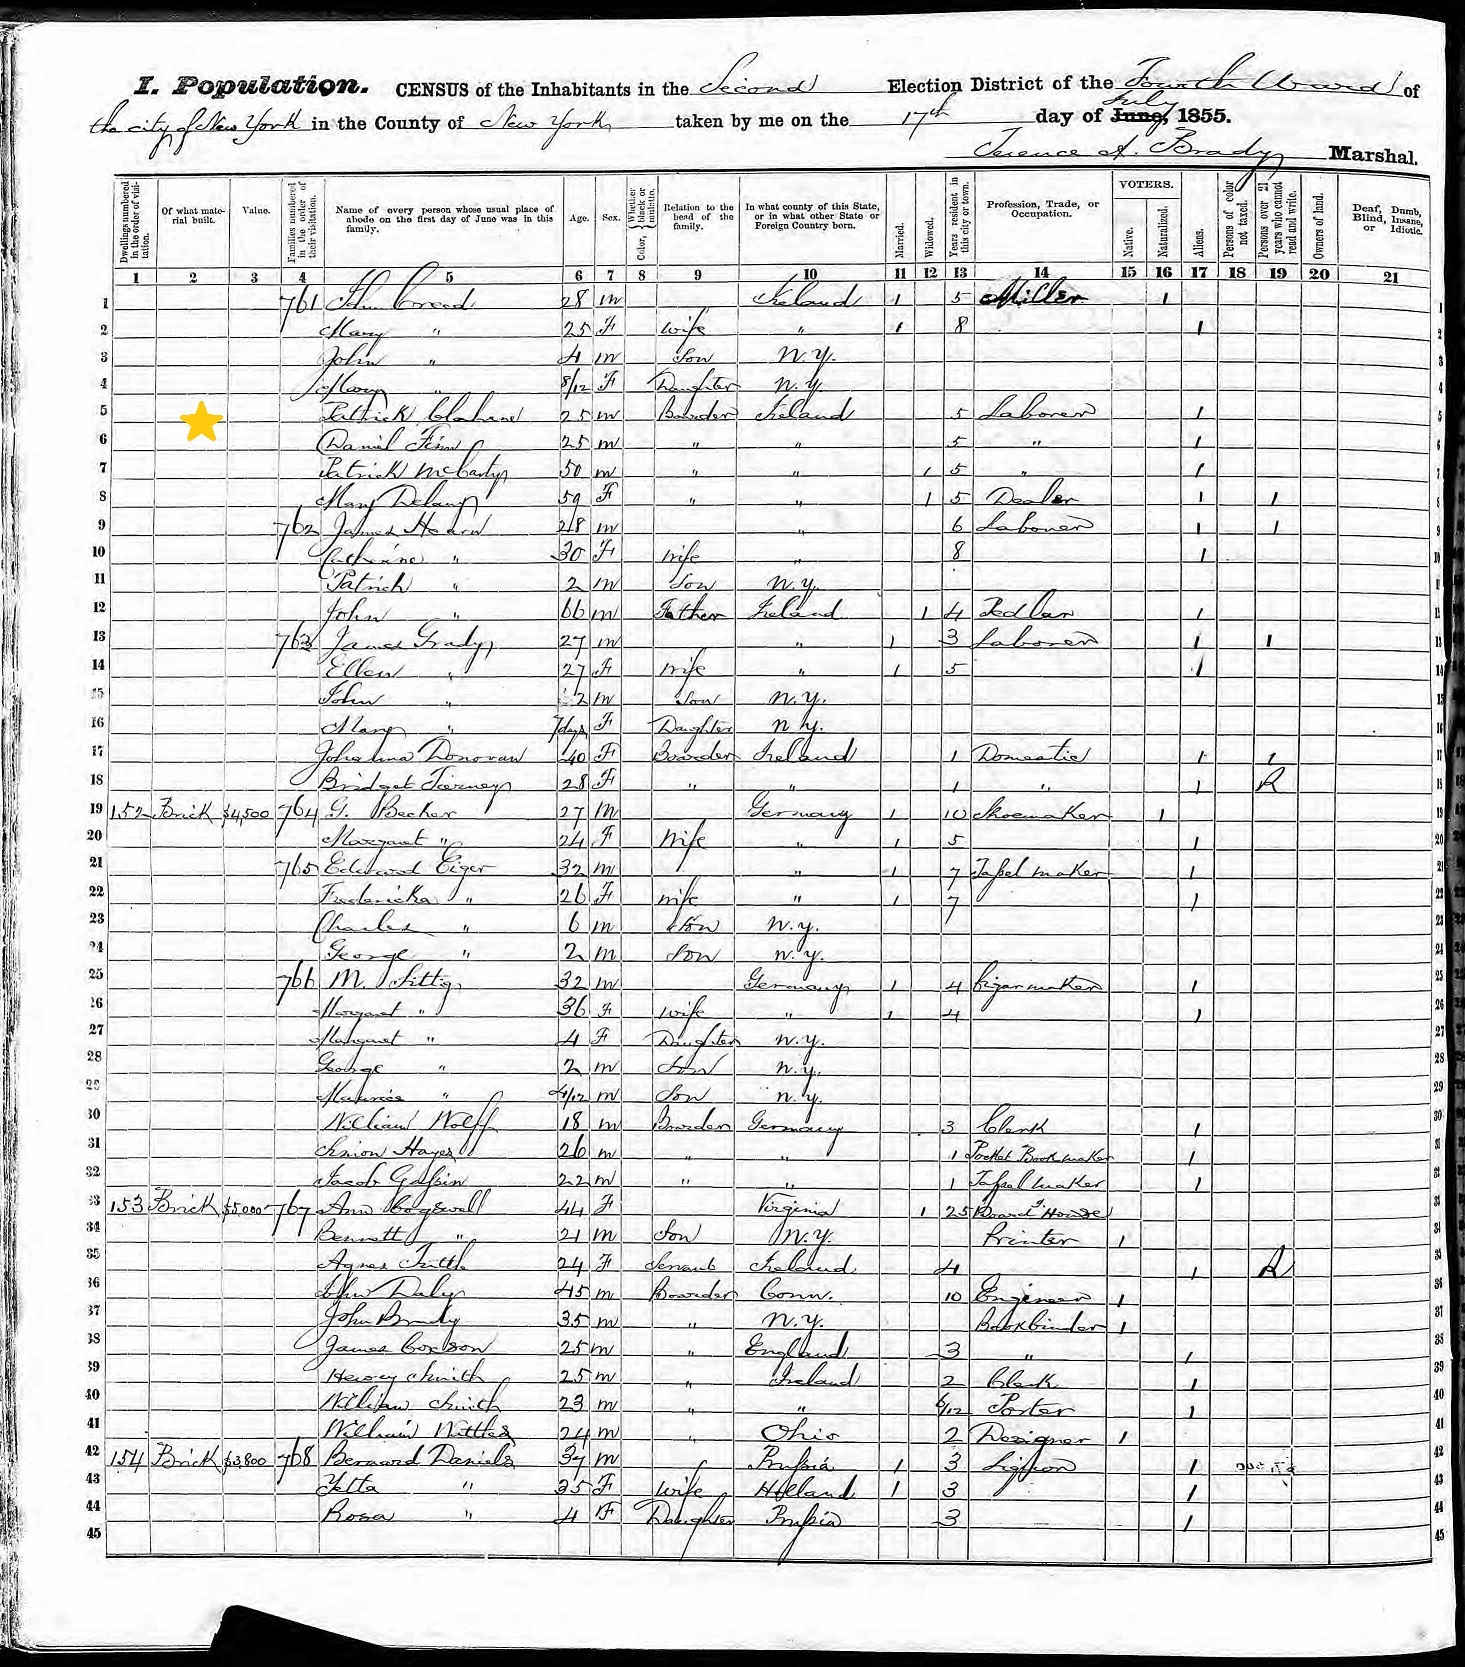 I. Population. CENSUS of the Inhabitants in the Second Election District of the Fourth Ward of
the city of New York in the County of New York taken by me on the 17th day of June, July 1855.
Terence A. Brady Marshal.
Dwellings numbered in the order of visitation. Of what material built. Value. Families numbered in the order of their visitation. Name of every person whose usual place of abode on the first day of June was in this family. Age. Sex. Color, Whether black or mulatto. Relation to the head of the family. In what county of this State, or in what other State or Foreign Country born. Married. Widowed. Years resident in this city or town. Profession, Trade, or Occupation. VOTERS. Native. Naturalized. Aliens. Persons of color not taxed. Persons over 21 years who cannot read and write. Owners of land. Deaf, Dumb, Blind, Insane, or Idiotic.
1 2 3 4 5 6 7 8 9 10 11 12 13 14 15 16 17 18 19 20 21
1 761 John Creed 28 m Ireland 1 5 Miller 1 1
2 Mary " 25 F wife " 1 8 1 2
3 John " 4 m Son N.Y. 3
4 Mary " 8/12 F Daughter N.Y. 4
5 Patrick 25 m Boarder Ireland 5 Laborer 1 5
6 Daniel Finn 25 m " " 5 " 1 6
7 Patrick McCarty 50 m " " 1 5 " 1 7
8 Mary Delany 59 F " " 1 5 Dealer 1 1 8
9 762 James Hearn 28 m " 6 Laborer 1 1 9
10 Catherine " 30 F wife " 8 1 10
11 Patrick " 2 m Son N.Y. 11
12 John " 66 m Father Ireland 1 4 Pedlar 1 12
13 763 James Grady 27 m " 1 3 Laborer 1 1 13
14 Ellen " 27 F wife " 1 5 1 14
15 John " 2 m Son N.Y. 15
16 Mary " 7 days F Daughter N.Y. 16
17 Johanna Donovan 40 F Boarder Ireland 1 Domestic 1 1 17
18 Bridget Tierney 28 F " " 1 " 1 R 18
19 152 Brick $4,500 764 G. Becker 27 M Germany 1 10 Shoemaker 1 19
20 Margaret " 24 F Wife " 1 5 1 20
21 765 Edward Eiger 32 m " 1 7 Tassel maker 1 21
22 Fredericka " 26 F wife " 1 7 1 22
23 Charles " 6 m Son N.Y. 23
24 George " 2 m Son N.Y. 24
25 766 M. 32 m Germany 1 4 Cigar maker 1 25
26 Margaret " 36 F wife " 1 4 1 26
27 Margaret " 4 F Daughter N.Y. 27
28 George " 2 m Son N.Y. 28
29 Maurice " 4/12 m Son N.Y. 29
30 William Wolff 18 m Boarder Germany 3 Clerk 1 30
31 Simon Hayes 26 m " " 1 Pocket Book maker 1 31
32 Jacob 22 m " " 1 Tassel maker 1 32
33 153 Brick $5,000 767 Ann Cogswell 44 F Virginia 1 25 Board'g House 33
34 Bennett " 21 m Son N.Y. Printer 1 34
35 Agnes Tuttle 24 F Servant Ireland 4 1 R 35
36 John Daly 45 m Boarder Conn. 10 Engineer 1 36
37 John Brady 35 m " N.Y. Bookbinder 1 37
38 James Coxson 25 m " England 3 " 1 38
39 Henry Smith 25 m " Ireland 2 Clerk 1 39
40 William Smith 23 m " " 6/12 Porter 1 40
41 William 24 m " Ohio 2 Designer 1 41
42 154 Brick $3,800 768 Bernard Daniels 37 m Prussia 1 3 1 42
43 Yetta " 35 F wife Holland 1 3 1 43
44 Rosa " 4 F Daughter Prussia 3 1 44
45 45